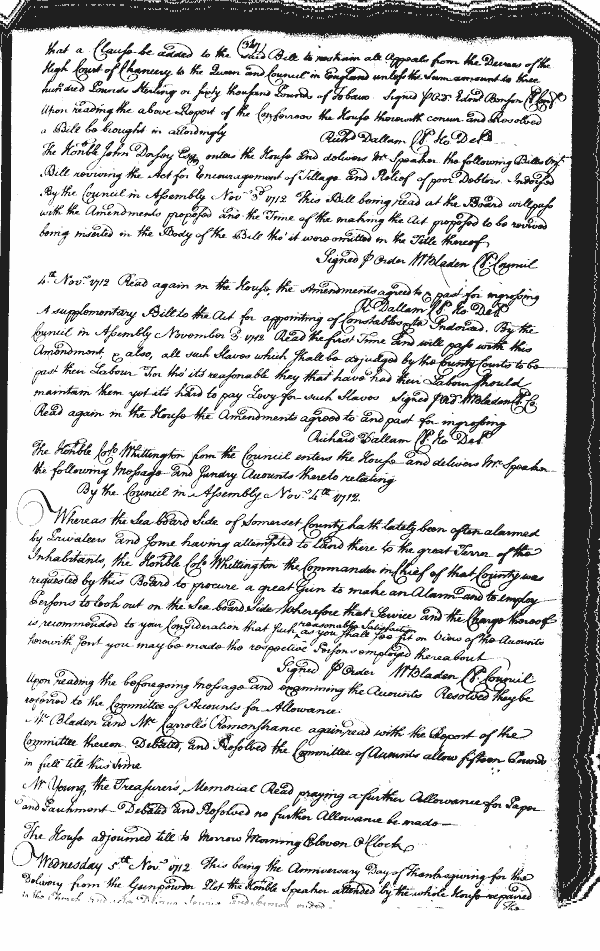 that a Clause be added to the said Bill to restrain all Appeals from the Decrees of the
High Court of Chancery to the Queen and Council in England unless the Sum amount to three
hundred Pounds Sterling or forty thousand Pounds of Tobacco Signed p Ord.
Upon reading the above Report of the Conferrees the House therewith concur and Resolved
a Bill be brought in accordingly
Richd Dallam Cl. Ho. Del.
The Honble John Dorsey Esq enters the House and delivers Mr Speaker the following Bills
Bill reviving the Act for Encouragement of Tillage and Relief of poor Debtors. Indorsed
By the Council in Assembly Novr 3d 1712 This Bill being read at the Board will pass
with the Amendments proposed and the Time of the making the Act proposed to be revived
being inserted in the Body of the Bill tho' it were omitted in the Title thereof
Signed p Order W Bladen Cl. Council
4th Novr 1712 Read again in the House, the Amendments agreed to & past for ingrossing
R Dallam Cl. Ho. Del.
A supplementary Bill to the Act for appointing of Constables &ca Indorsed. By the
Council in Assembly November 3 1712 Read the first Time and will pass with this
Amendment, & also, all such Slaves which shall be adjudged by the County Courts to be
past their Labour For tho' its reasonable they that have had their Labour should
maintain them yet it's hard to pay Levy for such Slaves Signed p Ord. W Bladen Cl. Co
Read again in the House the Amendments agreed to and past for ingrossing
Richard Dallam Cl. Ho. Del.
The Honble Colo. Whittington from the Council enters the House and delivers Mr Speaker
the following Message and sundry Accounts thereto relating
By the Council in Assembly Novr 4th 1712.
Whereas the Sea board Side of Somerset County hath lately been often alarmed
by Privateers and some having attempted to land there to the great Terror of the
Inhabitants, the Honble Colo. Whittington the Commander in Chief of that County was
requested by this Board to procure a great Gun to make an Alarm and to employ
Persons to look out on the Sea board Side Wherefore that Service and the Charge thereof
is recommended to your Consideration that such reasonable Satisfaction as you shall see fit on View of the Accounts
herewith sent you may be made the respective Persons employed thereabout
Signed p Order W Bladen Cl. Council
Upon reading the beforegoing Message and examining the Accounts Resolved they be
referred to the Committee of Accounts for Allowance.
Mr Bladen and Mr Carroll's Remonstrance again read with the Report of the
Committee thereon Debated, and Resolved the Committee of Accounts allow fifteen Pounds
in full till this Time
Mr Young, the Treasurer's, Memorial Read praying a further Allowance for Paper
and Parchment Debated and Resolved no further Allowance be made
The House adjourned till to Morrow Morning Eleven O'Clock
Wednesday 5th Novr 1712 This being the Anniversary Day of Thanksgiving for the
Delivery from the Gunpowder Plot the Honble Speaker attended by the whole House repaired
to the Church and after Divine Service and Sermon ended
The